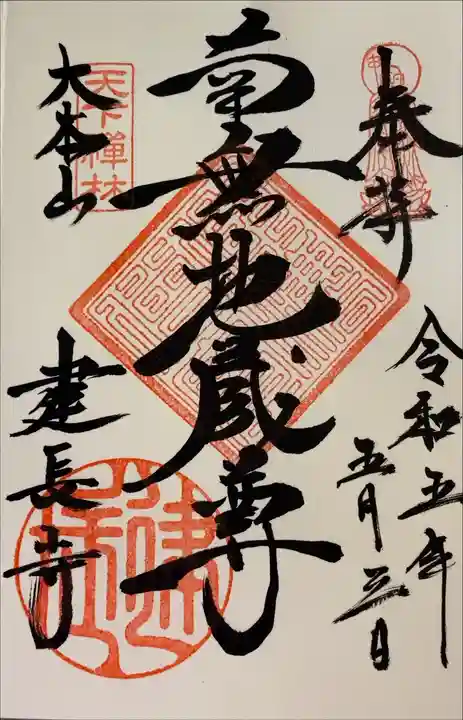 奉拝
令和五年
五月三日
南無地蔵尊
天下禅林
大本山
建長寺